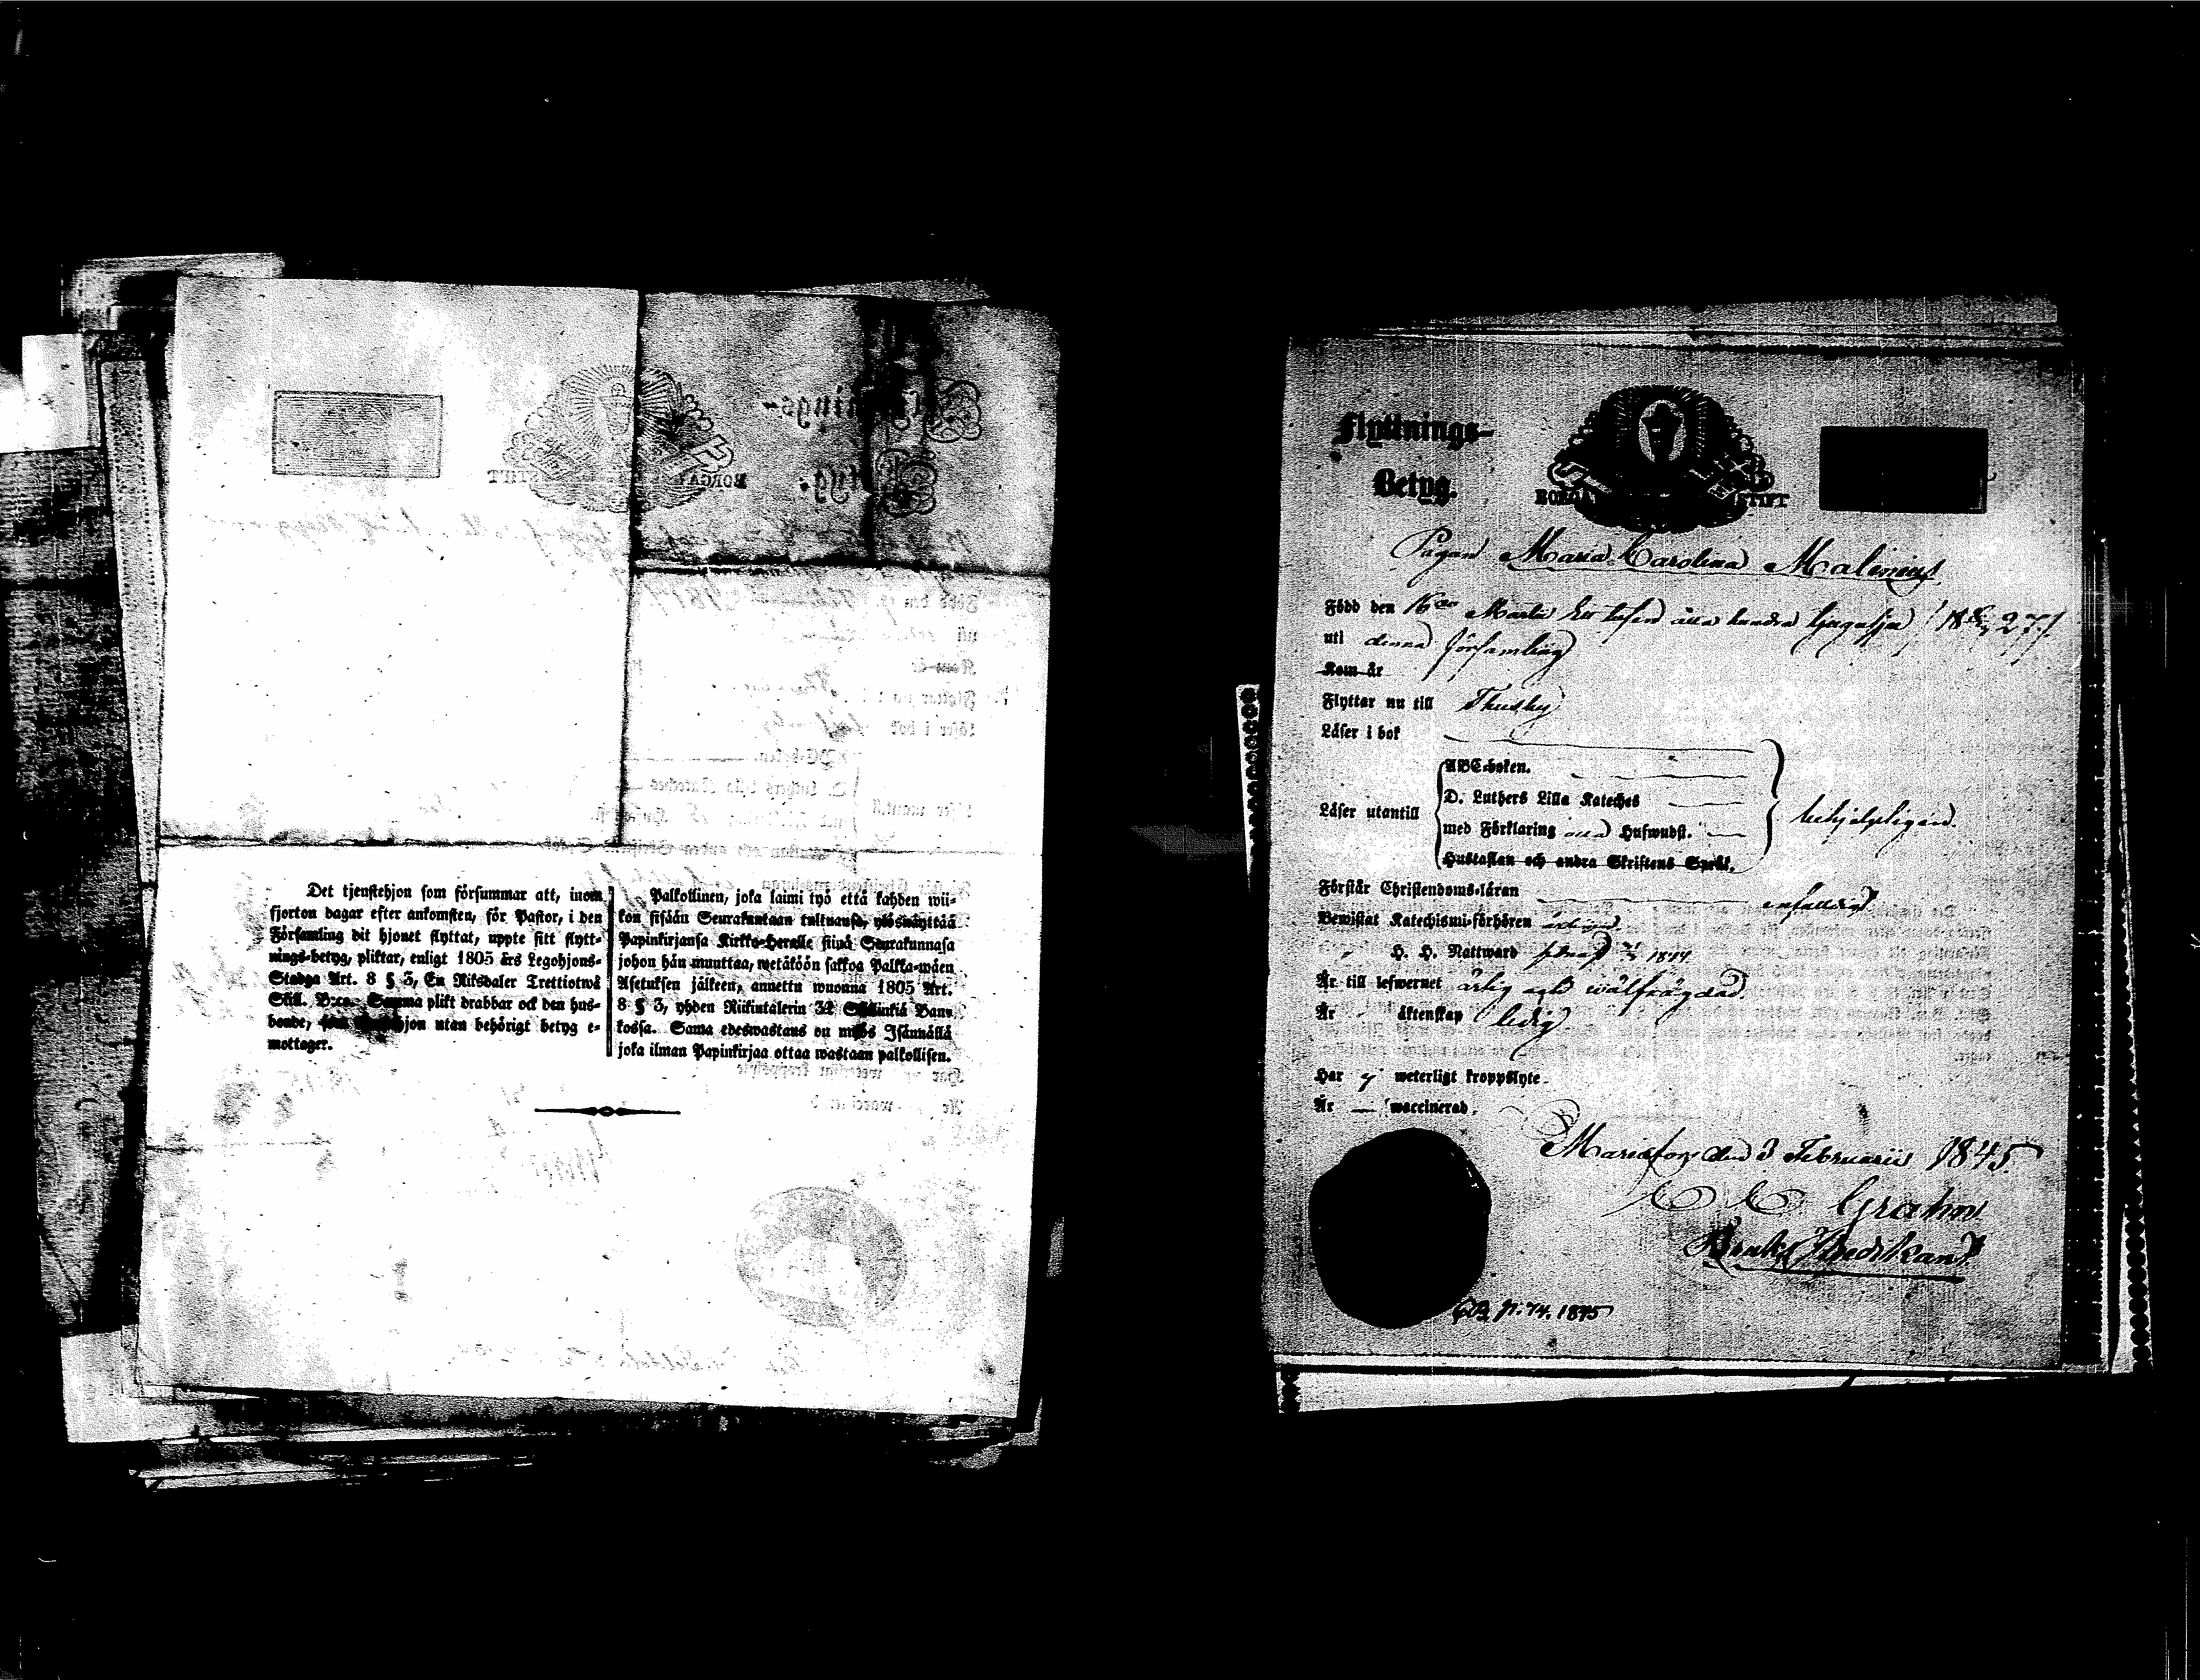 Det tjenstehjon som försummar att, inom
fjorton dagar efter ankomsten, för Pastor, i den
Församling dit hjonet flyttat, uppte sitt flytt-
nings-betyg, pliktar, enligt 1805 års Legohjons-
Stadga Art. 8 § 3, En Riksdaler Trettiotwå
Skill. B:co. Samma plikt drabbar ock den hus-
bonde, hjon utan behörigt betyg e-
mottager.
Palkollinen, joka laimi lyö että kahden wii-
kon sisään Seurakuntaan tultuansa, ylösnäyttää
Papinkirjansa Kirkko-Herralle siinä Seurakunnasa
johon hän muuttaa, wetäköön sakkoa Palkka-wäen
Asetuksen jälkeen, annettu wuonna 1805 Art.
8 § 3, yhden Riikintalerin 32 Skillinkiä Banc
kossa. Sama edeswastaus on myös Isännällä
joka ilman Papinkirjaa ottaa wastaan palkollisen.
Flyttnings-
Betyg.
BORGÅ STIFT
Pigan Maria Carolina Malenius
Född den 16de Martii Ett tusend åtta hundra tjugusju / 18 27/.
uti denna församling
Kom år
Flyttar nu till Thusby
Läser i bok
ABC-boken.
D. Luthers Lilla Kateches
Läser utantill
med Förklaring och Hufwudst.
behjelpligen.
Hustaflan och andra Skriftens Språk.
Förstår Christendoms-läran enfaldigt
Bewistat Katechismi-förhören årligen
H. H. Nattward 1844
Är till lefwernet ärlig och wälfrägdad.
Är äktenskap ledig
Har ej weterligt kroppslyte.
Är waccinerad.
Mariefors den 3 Februarii 1845
Grahn
Bruks Predikant
N. 74. 1845